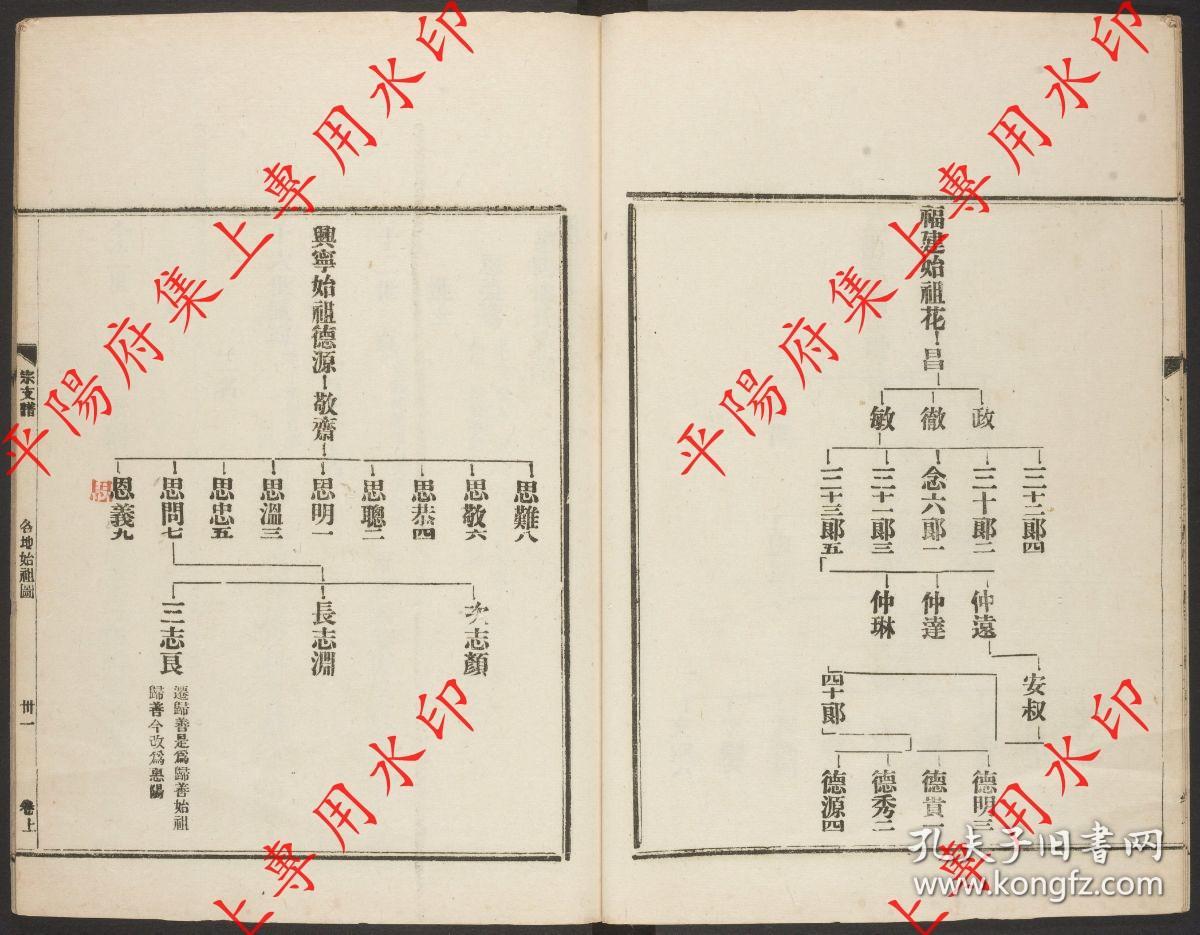 福建始祖花
昌
政
徹
敏
三十二郎四
三十郎二
念六郎一
三十一郎三
三十三郎五
仲遠
仲達
仲琳
安叔
四十郎
德明三
德貴一
德秀二
德源四
興寧始祖德源
敬齋
思難八
思敬六
思恭四
思聰二
思明一
思溫三
思忠五
思問七
恩義九
思
次志顏
長志淵
三志良
遷歸善是為歸善始祖
歸善今改為惠陽
宗支譜
各地始祖圖
卅一
卷上
平陽府集上專用水印
平陽府集上專用水印
上專用水印
上專用水印
孔夫子旧书网
www.kongfz.com